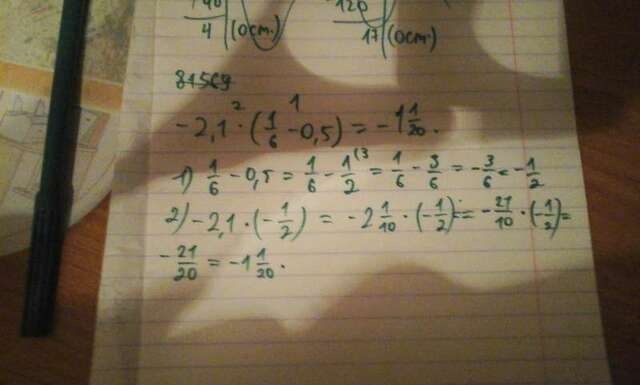 4 (ост.) 17 (ост.)
-2,1 · (1/6 - 0,5) = -1 1/20.
1) 1/6 - 0,5 = 1/6 - 1/2 (3 = 1/6 - 3/6 = -3/6 = -1/2
2) -2,1 · (-1/2) = -2 1/10 · (-1/2) = -21/10 · (-1/2) =
-21/20 = -1 1/20.